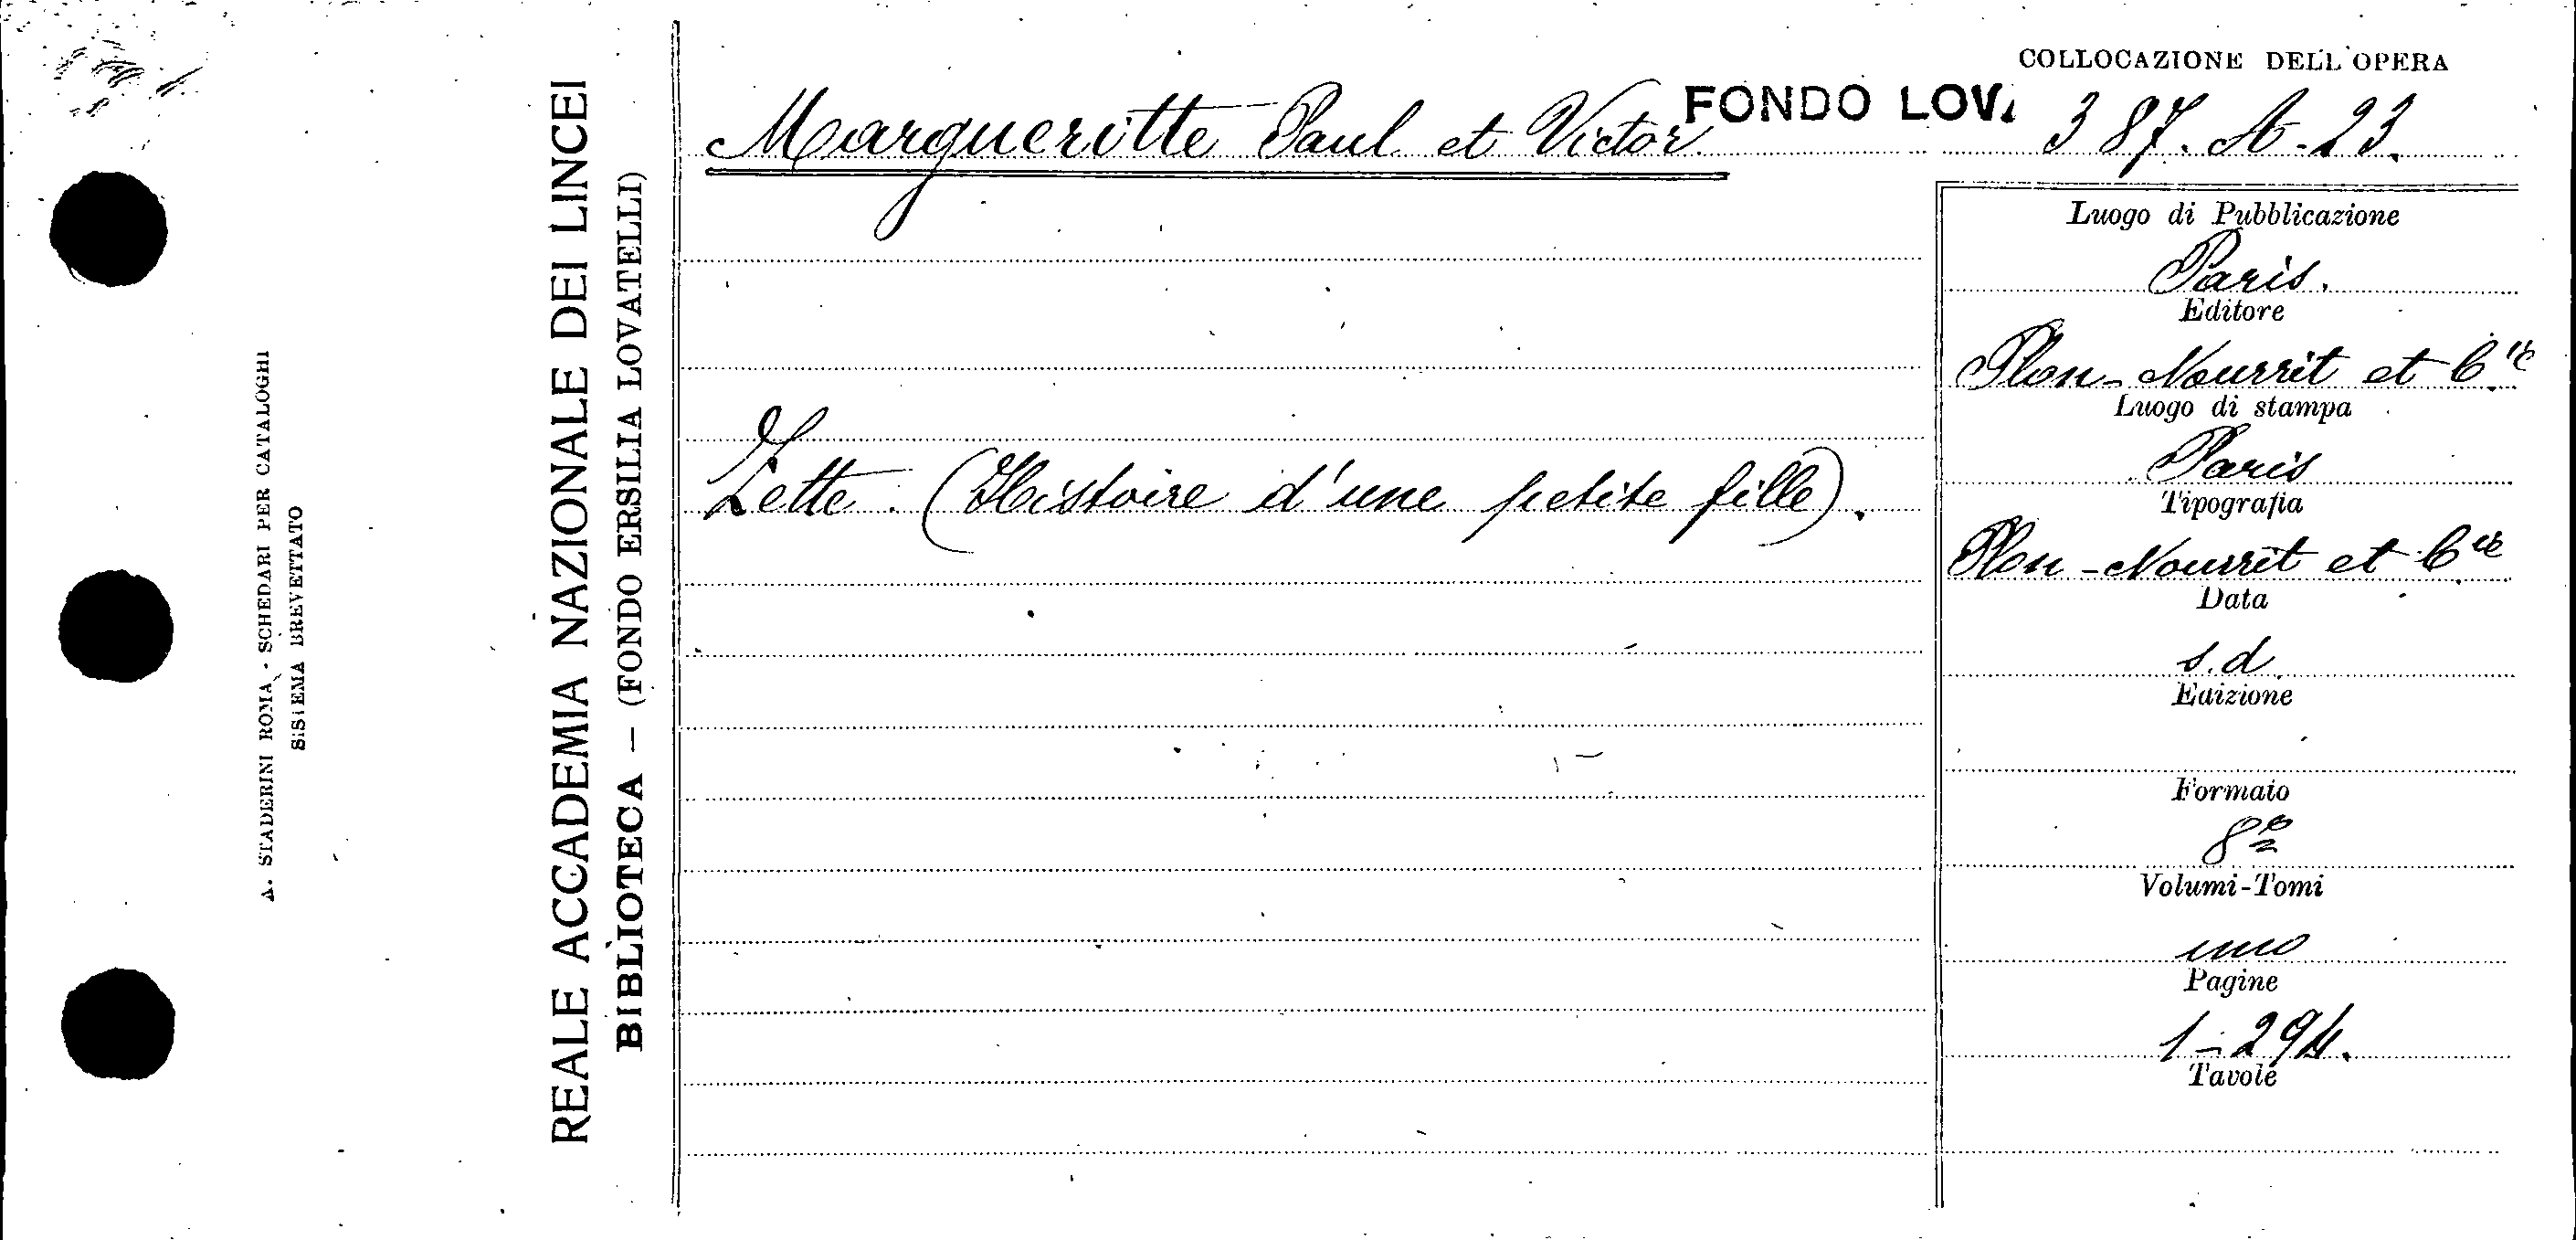 COLLOCAZIONE DELL'OPERA
Margueritte Paul et Victor FONDO LOV. 387. A. 23.
Zette. (Histoire d'une petite fille).
Luogo di Pubblicazione
Paris.
Editore
Plon-Nourrit et C.ie
Luogo di stampa
Paris
Tipografia
Plon-Nourrit et C.ie
Data
s.d.
Edizione
Formato
8º
Volumi-Tomi
uno
Pagine
1-294.
Tavole
REALE ACCADEMIA NAZIONALE DEI LINCEI
BIBLIOTECA — (FONDO ERSILIA LOVATELLI)
A. STADERINI ROMA - SCHEDARI PER CATALOGHI
SISTEMA BREVETTATO